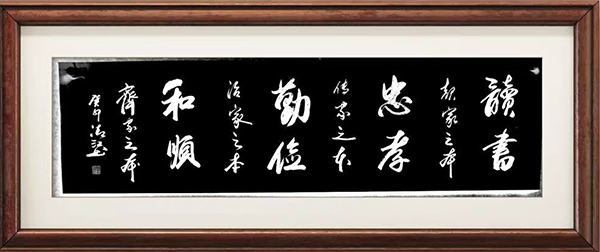 讀書
起家之本
忠孝
传家之本
勤俭
治家之本
和順
齊家之本
癸卯